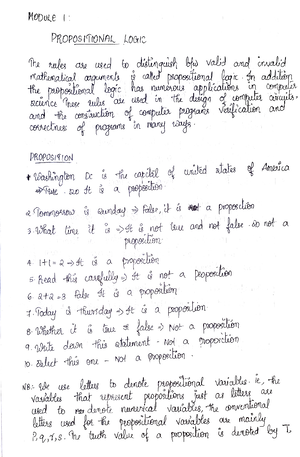 MODULE 1:
PROPOSITIONAL LOGIC
The rules are used to distinguish b/w valid and invalid
mathematical arguments is called propositional logic. In addition
the propositional logic has numerous applications in computer
science. These rules are used in the design of computer circuits
and the construction of computer programs verification and
correctness of programs in many ways.
PROPOSITION
1. Washington DC is the capital of united states of America
→ True. so It is a proposition
2. Tommorrow is sunday → False, it is not a proposition
3. What time it is → It is not true and not false. so not a
proposition.
4. 1+1=2 → It is a proposition
5. Read this carefully → It is not a proposition
6. 2+2=3 False It is a proposition
7. Today is thursday → It is a proposition
8. Whether it is true or false → Not a proposition
9. Write down this statement - Not a proposition
10. Select this one - Not a proposition.
NB:- We use letters to denote propositional variables. ie, the
variables that represent propositions just as letters are
used to denote numerical variables, the conventional
letters used for the propositional variables are mainly
P, q, r, s. The truth value of a proposition is denoted by T,